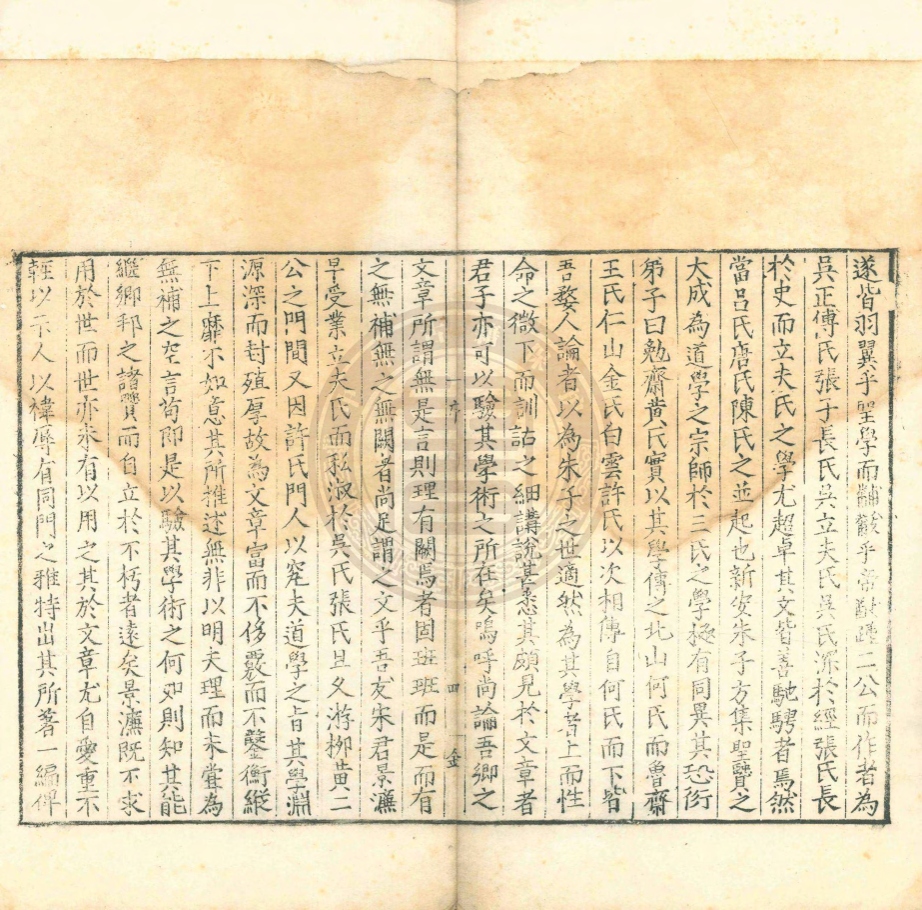 遂皆羽翼乎聖學而黼黻乎帝猷踵二公而作者為
吳正傳氏張子長氏吳立夫氏吳氏深於經張氏長
於史而立夫氏之學尤超卓其文皆善馳騁者焉然
當呂氏唐氏陳氏之並起也新安朱子方集聖賢之
大成為道學之宗師於三氏之學極有同異其恐衍
弟子曰勉齋黃氏實以其學傳之北山何氏而魯齋
王氏仁山金氏白雲許氏以次相傳自何氏而下皆
吾婺人論者以為朱子之世適然為其學者上而性
命之微下而訓詁之細講說甚悉其頗見於文章者
君子亦可以驗其學術之所在矣嗚呼尚論吾鄉之
序
四
金
文章所謂無是言則理有闕焉者固班班而是而有
之無補無之無闕者尚足謂之文乎吾友宋君景濂
早受業立夫氏而私淑於吳氏張氏且久游柳黃二
公之門間又因許氏門人以究夫道學之旨其學淵
源深而封殖厚故為文章富而不侈覈而不鑿衡縱
下上靡不如意其所推述無非以明夫理而未嘗為
無補之空言苟即是以驗其學術之何如則知其能
繼鄉邦之諸賢而自立於不朽者遠矣景濂既不求
用於世而世亦未有以用之其於文章尤自愛重不
輕以示人以禕辱有同門之雅特出其所著一編俾